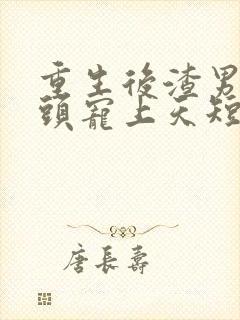 重生後渣男
頭寵上天短
唐長壽